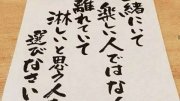 緒にいて
楽しい人ではなく
離れていて
淋しいと思う人を
選びなさい